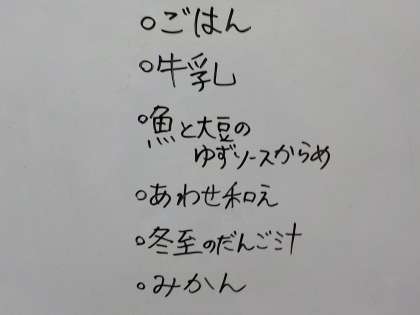 ○ごはん
○牛乳
○魚と大豆の
ゆずソースからめ
○あわせ和え
○冬至のだんご汁
○みかん